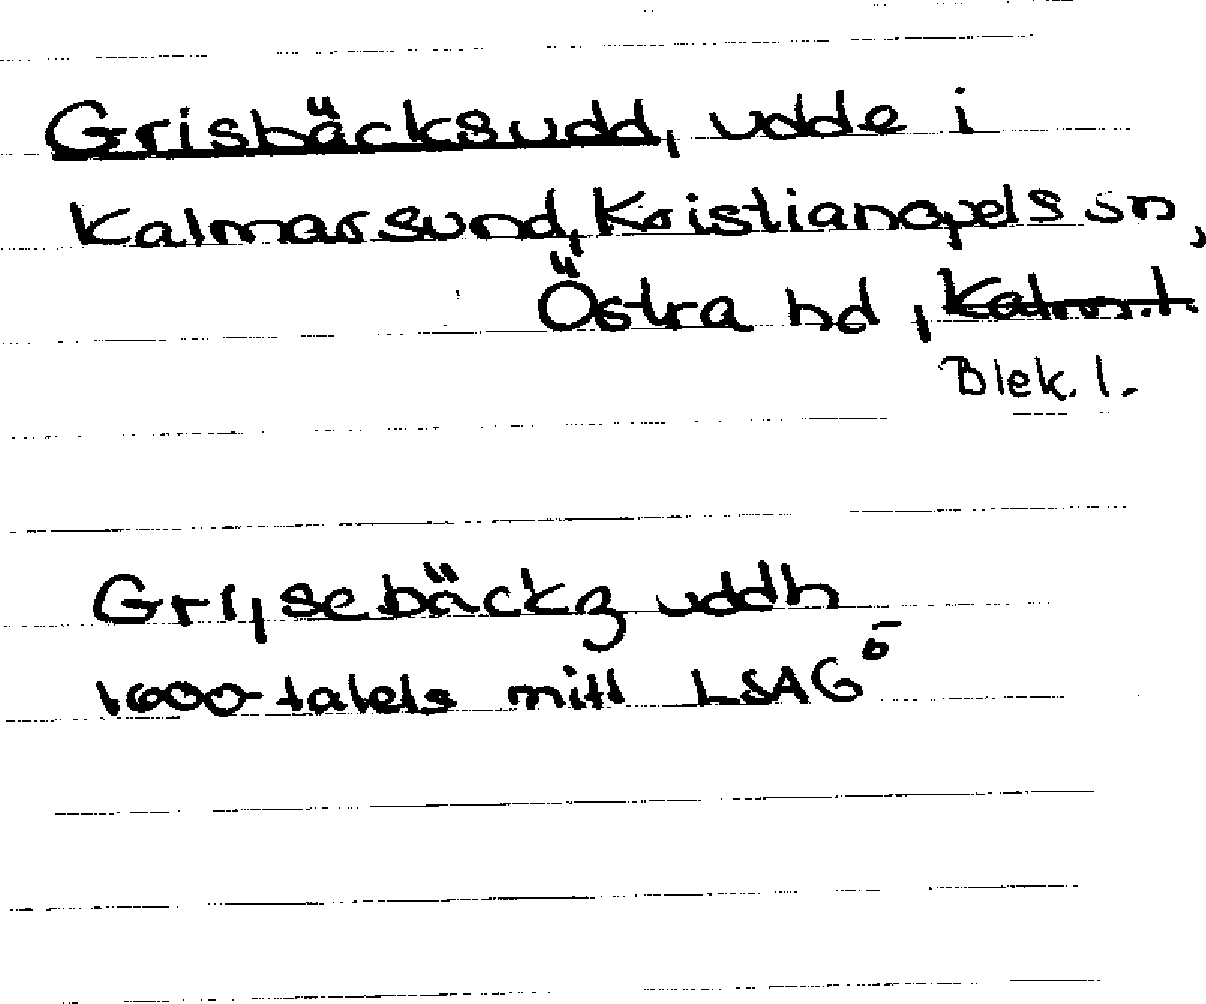 Grisbäcksudd, udde i
Kalmarsund, Kristianopels sn,
Östra hd, Kalm. l.
Blek. l.
Grijsebäckz uddh
1600-talets mitt LSA G5